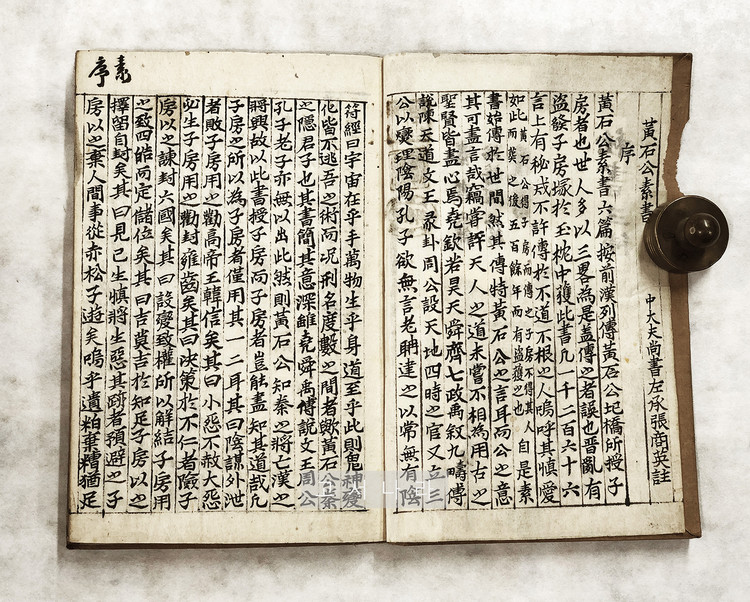 黃石公素書
中大夫尚書左承張商英註
序
黃石公素書六篇按前漢列傳黃石公圯橋所授子
房者也世人多以三畧為是盖傳之者誤也晋亂有
盜發子房塚於玉枕中獲此書凡一千二百六十六
言上有秘戒不許傳於不道不根之人嗚呼其慎愛
如此黃石公得子房而傳之子房不得其人而葬之後五百餘年而有盜獲之也自是素
書始傳於世間然其傳特黃石公之言耳而公之意
其可盡言哉竊嘗評天人之道未嘗不相為用古之
聖賢皆盡心焉堯欽若昊天舜齊七政禹叙九疇傅
說陳天道文王彖卦周公設天地四時之官又立三
公以燮理陰陽孔子欲無言老聃達之以常無有陰
素序
符經曰宇宙在乎手萬物生乎身道至乎此則鬼神變
化皆不逃吾之術而况刑名度數之間者歟黃石公秦
之隱君子也其書簡其意深雖堯舜禹傅說文王周公
孔子老子亦無以出此然則黃石公知秦之將亡漢之
將興故以此書授子房而子房者豈能盡知其道哉凡
子房之所以為子房者僅用其一二耳其曰陰謀外泄
者敗子房用之勸高帝王韓信矣其曰小怨不赦大怨
必生子房用之勸封雍齒矣其曰決策於不仁者險子
房以之諫封六國矣其曰設變致權所以解結子房用
之致四皓而定儲位矣其曰吉莫吉於知足子房以之
擇留自封矣其曰見己生慎將生惡其跡者預避之子
房以之棄人間事從赤松子遊矣嗚乎遺粕棄糟猶足